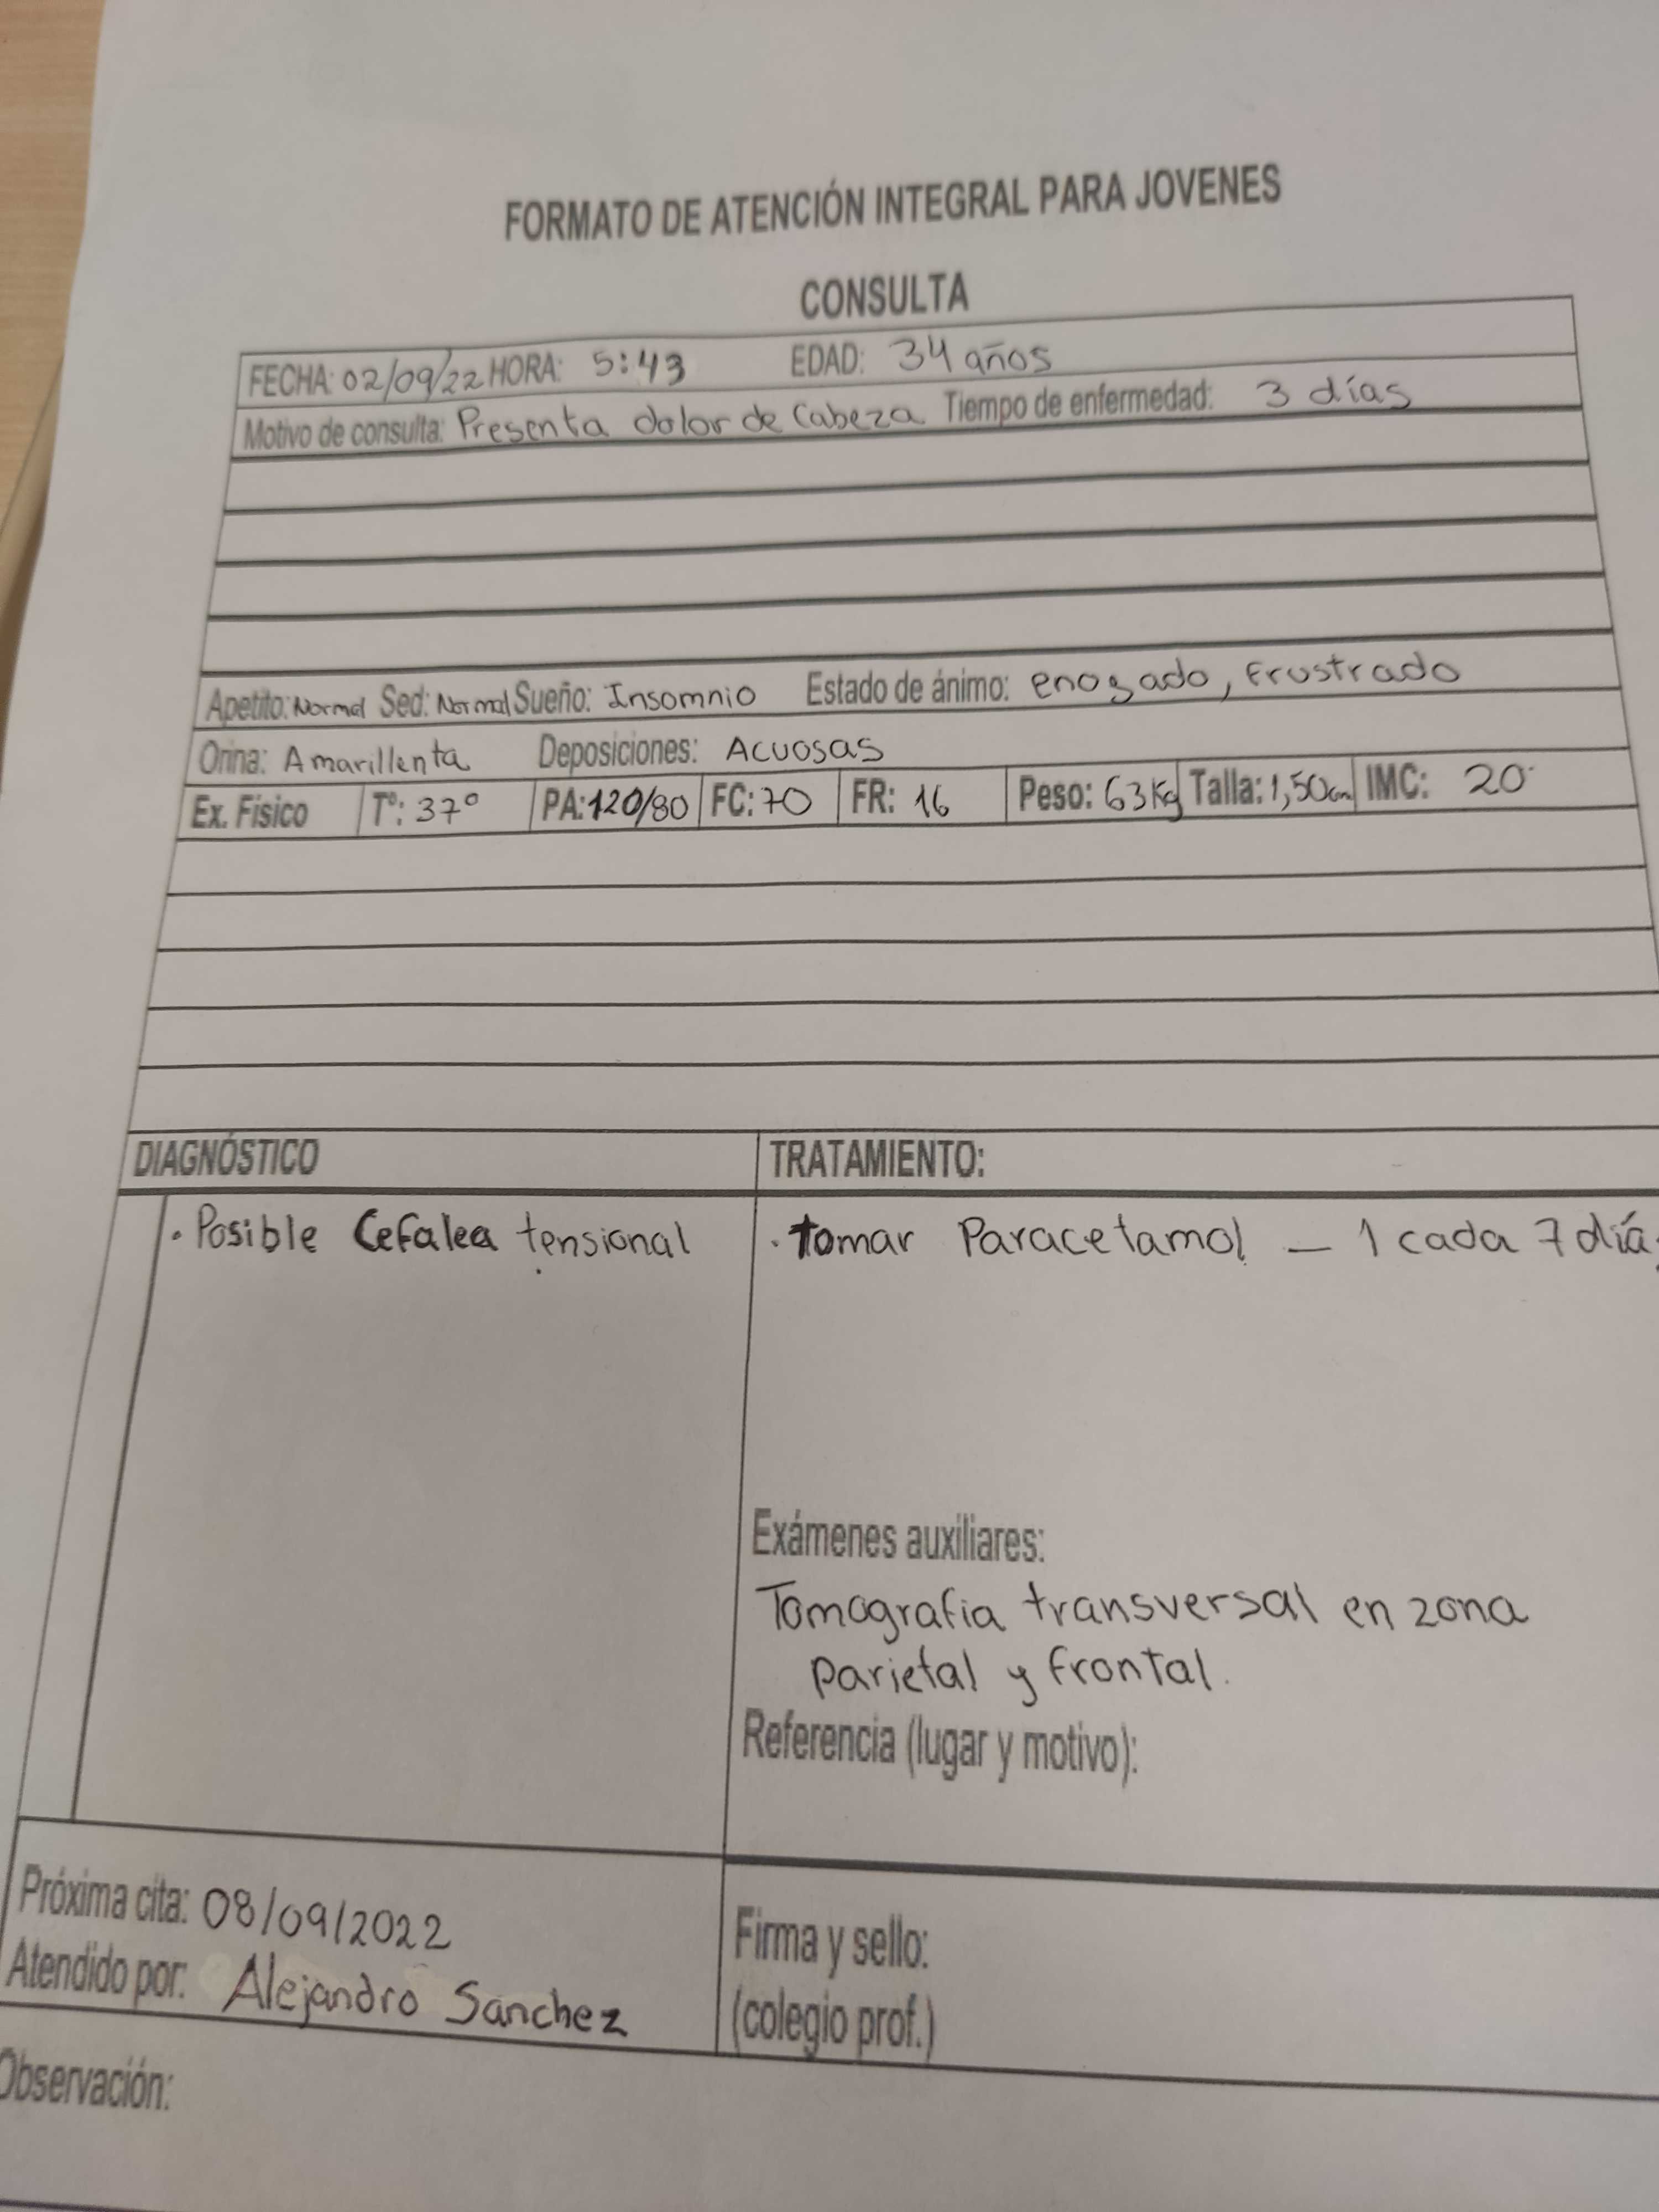 FORMATO DE ATENCIÓN INTEGRAL PARA JOVENES
CONSULTA
FECHA: 02/09/22 HORA: 5:43 EDAD: 34 años
Motivo de consulta: Presenta dolor de Cabeza Tiempo de enfermedad: 3 días
Apetito: Normal Sed: Normal Sueño: Insomnio Estado de ánimo: enojado, Frustrado
Orina: Amarillenta Deposiciones: Acuosas
Ex. Físico Tº: 37° PA: 120/80 FC: 70 FR: 16 Peso: 63Kg Talla: 1,50cm IMC: 20
DIAGNÓSTICO TRATAMIENTO:
· Posible Cefalea tensional · tomar Paracetamol — 1 cada 7 día
Exámenes auxiliares:
Tomografia transversal en zona
parietal y frontal.
Referencia (lugar y motivo):
Próxima cita: 08/09/2022
Atendido por: Alejandro Sanchez
Firma y sello:
(colegio prof.)
Observación: